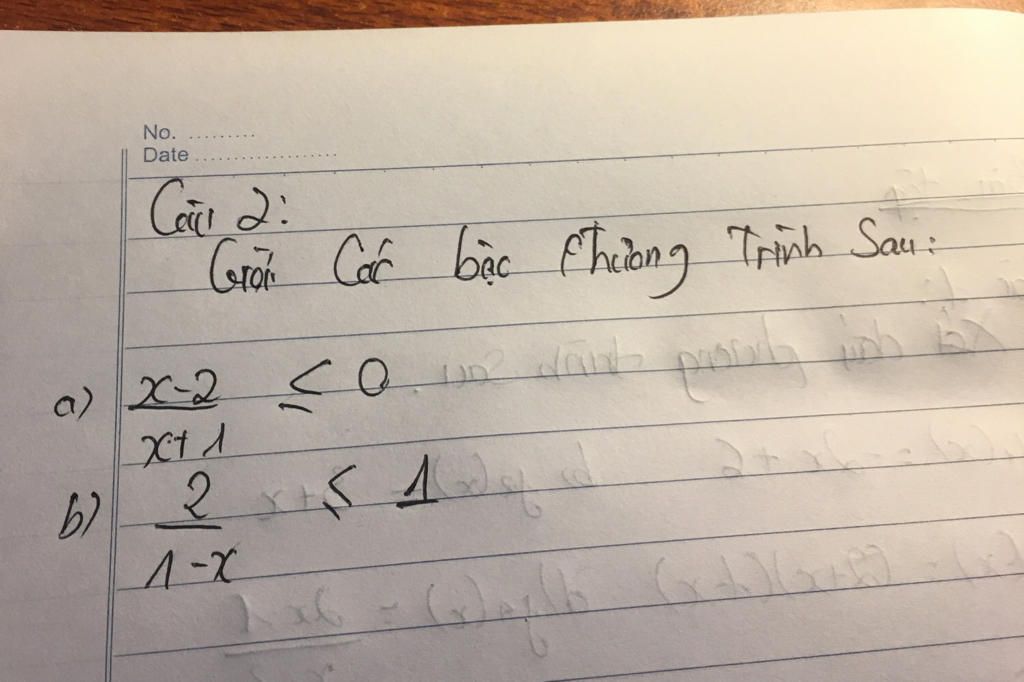 No. .........
Date ...................
Câu 2:
Giải Các bậc Phương Trình Sau:
a) x-2 ≤ 0
x+1
b) 2 ≤ 1
1-x